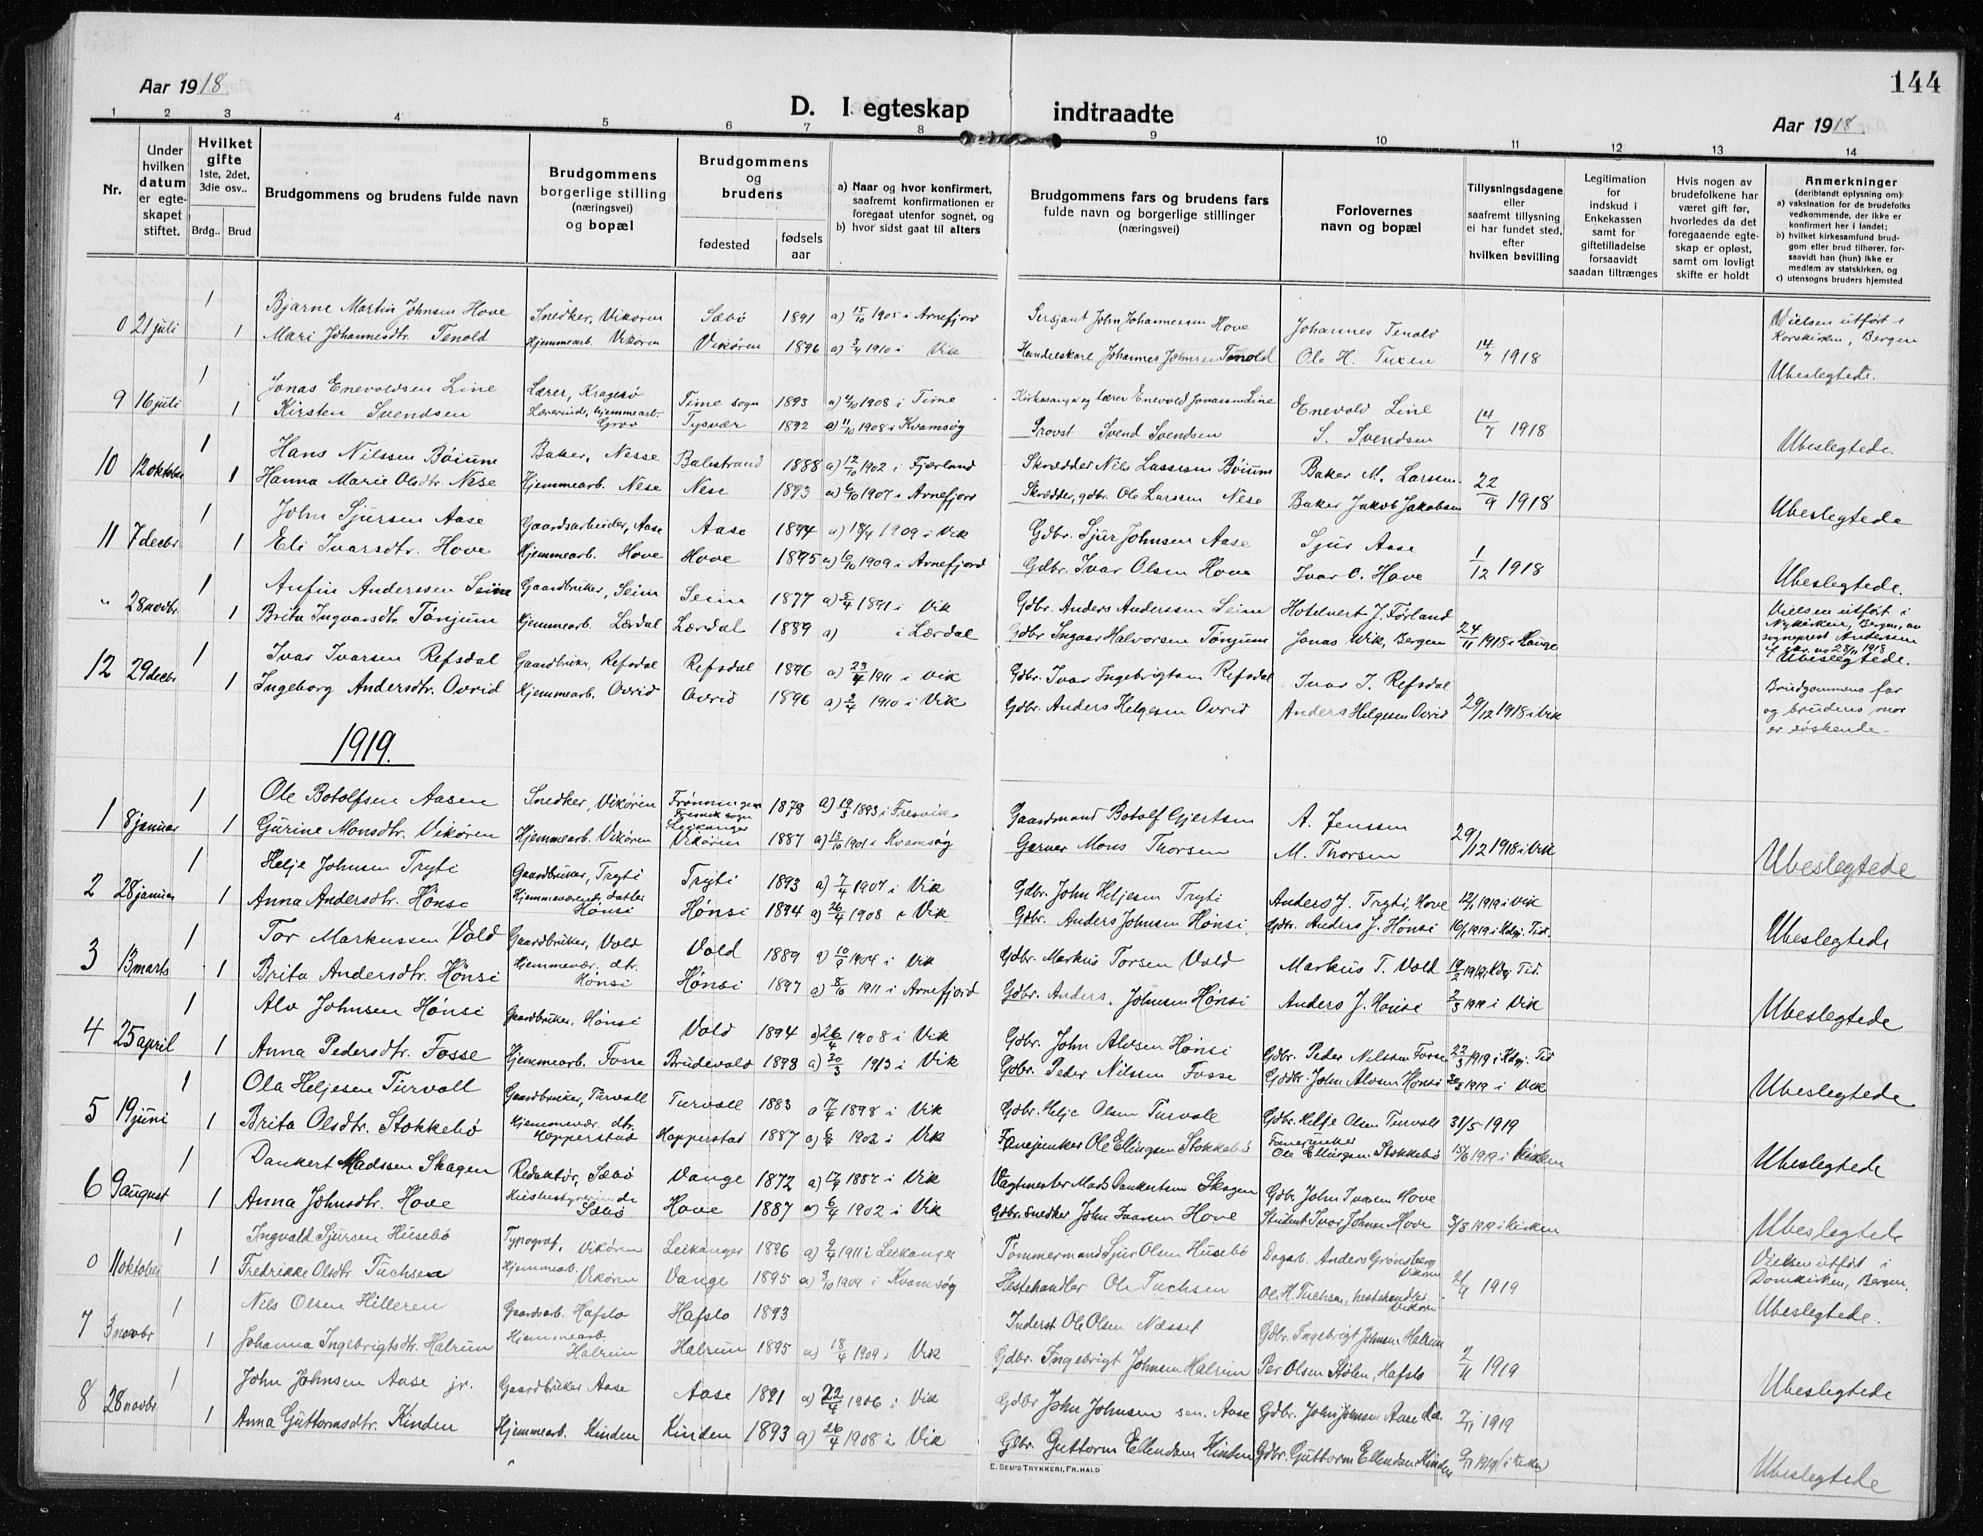 144
Aar 1918
D. I egteskap indtraadte
Aar 1918
1 2 3 4 5 6 7 8 9 10 11 12 13 14
Nr.
Under hvilken datum er egteskapet stiftet.
Hvilket gifte 1ste, 2det, 3die osv..
Brdg.. Brud
Brudgommens og brudens fulde navn
Brudgommens borgerlige stilling (næringsvei) og bopæl
Brudgommens og brudens
fødested
fødselsaar
a) Naar og hvor konfirmert, saafremt konfirmationen er foregaat utenfor sognet, og
b) hvor sidst gaat til alters
Brudgommens fars og brudens fars fulde navn og borgerlige stillinger (næringsvei)
Forlovernes navn og bopæl
Tillysningsdagene eller saafremt tillysning ei har fundet sted, efter hvilken bevilling
Legitimation for indskud i Enkekassen samt for giftetilladelse forsaavidt saadan tiltrænges
Hvis nogen av brudefolkene har været gift før, hvorledes da det foregaaende egteskap er opløst, samt om lovligt skifte er holdt
Anmerkninger (deriblandt oplysning om)
a) vaksination for de brudefolks vedkommende, der ikke er konfirmert her i landet;
b) hvilket kirkesamfund brudgom eller brud tilhører, forsaavidt han (hun) ikke er medlem av statskirken, og
c) utensogns bruders hjemsted
1 Bjarne Martin Johnsen Hove Snedker, Vikøren Sæbø 1891 a) 15/10 1905 i Arnefjord Sersjant John Johannessen Hove Johannes Tenold Vielsen utført i Korskirken, Bergen
0 21 juli 1 Mari Johannesdtr. Tenold Hjemmearb. Vikøren Vikøren 1896 a) 3/4 1910 i Vik Handelskarl Johannes Johnsen Tenold Ole H. Tuxen 14/7 1918 Ubeslegtede.
1 Jonas Enevoldsen Line Lærer, Kragerø Time sogn 1893 1908 i Time Kirkesanger og lærer Enevold Jonassen Line Enevold Line
9 16 juli 1 Kirsten Svendsen Lærerinde, hjemmearb. Tysvær 1892 a) 11/10 1908 i Kvamsøy Provst Svend Svendsen S. Svendsen 14/7 1918 Ubeslegtede.
1 Hans Nilssen Bøium Baker, Nesse Balestrand 1888 a) 12/10 1902 i Fjærland Skrædder Nils Lasseson Bøium Baker M. Larssen
10 12 oktober 1 Hanna Marie Olsdtr. Nese Hjemmearb. Nese Nese 1893 a) 6/10 1907 i Arnefjord Skrædder, gdbr. Ole Larssen Nese Baker Jakob Jakobsen 22/9 1918 Ubeslegtede
1 John Sjursen Aase Gaardsarbeider, Aase Aase 1894 a) 18/4 1909 i Vik Gdbr. Sjur Johnsen Aase Sjur Aase
11 7 decbr. 1 Eli Ivarsdtr. Hove Hjemmearb. Hove Hove 1895 a) 10/10 1909 i Arnefjord Gdbr. Ivar Olsen Hove Ivar O. Hove 1/12 1918 Ubeslegtede.
1 Anfin Anderssen Seim Gaardbruker, Seim Seim 1877 a) 5/4 1891 i Vik Gdbr. Anders Anderssen Seim Hotelvert J. Førland Vielsen utført i Nykirken, Bergen, av sogneprest Andersen
" 28 novbr. 1 Brita Ingvarsdtr. Tønjum Hjemmearb. Lærdal Lærdal 1889 a) i Lærdal Gdbr Ingvar Halvorsen Tønjum Jonas Wik, Bergen 24/11 1918 Ubeslegtede.
1 Ivar Ivarsen Refsdal Gaardbruker, Refsdal Refsdal 1896 a) 23/4 1911 i Vik Gdbr. Ivar Ingebrigtsen Refsdal Ivar I. Refsdal
12 29 decbr 1 Ingeborg Andersdtr. Ovrid Hjemmearb. Ovrid Ovrid 1896 a) 3/4 1910 i Vik Gdbr. Anders Helgesen Ovrid Anders Helgesen Ovrid 29/12 1918 i Vik Brudgommens far og brudens mor er søskende.
1919.
1 Ole Botolfsen Aasen Snedker, Vikøren Frønningen Fresvik sogn Leikanger 1878 a) 19/3 1893 i Fresvik Gaardmand Botolf Gjertsen A. Jenssen
1 8 januar 1 Gurine Monsdtr. Vikøren Hjemmearb. Vikøren Vikøren 1887 a) 13/10 1901 i Kvamsøy Garver Mons Thorsen M. Thorsen 29/12 1918 i Vik Ubeslegtede
1 Helje Johnsen Tryti Gaardbruker, Tryti Tryti 1893 a) 7/4 1907 i Vik Gdbr. John Heljesen Tryti Anders J. Tryti, Hove 12/1 1919 i Vik
2 28 januar 1 Anna Andersdtr. Hønsi Hjemmeværende datter Hønsi Hønsi 1894 a) 26/4 1908 i Vik Gdbr. Anders Johnsen Hønsi Gdbr. Anders J. Hønsi 16/1 1919 i Kdgj. Tid. Ubeslegtede
1 Tor Markussen Vold Gaardbruker, Vold Vold 1889 1904 i Vik Gdbr. Markus Torsen Vold Markus T. Vold 1919 i Kdgj. Tid.
3 13 marts 1 Brita Andersdtr. Hønsi Hjemmevær. dtr. Hønsi Hønsi 1897 a) 8/10 1911 i Arnefjord Gdbr. Anders Johnsen Hønsi Anders J. Hønsi 2/3 1919 i Vik Ubeslegtede
1 Alv Johnsen Hønsi Gaardbruker, Hønsi Vold 1894 a) 26/4 1908 i Vik Gdbr. John Alvsen Hønsi Gdbr. Peder Nilssen Fosse 22/3 1919 i Kdgj. Tid
4 25 april 1 Anna Pedersdtr. Fosse Hjemmearb. Fosse Brudevold 1898 a) 30/3 1913 i Vik Gdbr. Peder Nilssen Fosse Gdbr. John Alvsen Hønsi 30/3 1919 i Vik Ubeslegtede
1 Ola Heljesen Turvoll Gaardbruker, Turvoll Turvoll 1883 a) 7/4 1898 i Vik Gdbr. Helje Olsen Turvoll Gdbr. Helje Olsen Turvoll 31/5 1919
5 19 juni 1 Brita Olsdtr. Stokkebø Hjemmevær. dtr. Hopperstad Hopperstad 1887 a) 1902 i Vik Fanejunker Ole Ellingsen Stokkebø Fanejunker Ole Ellingsen Stokkebø 15/6 1919 i kirken Ubeslegtede
1 Dankert Madssen Skagen Redaktør, Sæbø Vange 1872 a) 1887 i Vik Vagtmester Mads Dankertsen Skagen Gdbr John Ivarsen Hove
6 9 august 1 Anna Johnsdtr. Hove Husbestyrerinde Sæbø Hove 1887 a) 6/4 1902 i Vik Gdbr. Snedker John Ivarsen Hove Student Ivar Johnsen Hove 3/8 1919 i kirken Ubeslegtede
1 Ingvald Sjursen Husebø Typograf, Vikøren Leikanger 1896 a) 9/4 1911 i Leikanger Tømmermand Sjur Olsen Husebø Dagarb. Anders Grønsberg Vikøren Vielsen utført i Domkirken, Bergen.
0 11 oktober 1 Fredrikke Olsdtr Tuchsen Hjemmearb. Vikøren Vange 1895 a) 1909 i Kvamsøy Hestehandler Ole Tuchsen Ole H. Tuchsen, hestehandler Vikøren 21/9 1919 Ubeslegtede.
1 Nils Olsen Hilleren Gaardsarb. Hafslo Hafslo 1893 Inderst Ole Olsen Næsset Gdbr. Ingebrigt Johnsen Halrun
7 3 novbr 1 Johanna Ingebrigtsdtr. Halrun Hjemmearb Halrun Halrun 1895 a) 18/4 1909 i Vik Gdbr. Ingebrigt Johnsen Halrun Per Olsen Stølen, Hafslo 2/11 1919 Ubeslegtede
1 John Johnsen Aase jr. Gaardbruker Aase Aase 1891 a) 22/4 1906 i Vik Gdbr John Johnsen sen. Aase Gdbr. John Johnsen Aase 2/11 1919
8 28 novbr 1 Anna Guttormsdtr. Kinden Hjemmearb. Kinden Kinden 1893 a) 26/4 1908 i Vik Gdbr. Guttorm Ellendsen Hinden Gdbr. Guttorm Ellendsen Kinden 9/11 1919 i kirken Ubeslegtede
E. SEM'S TRYKKERI, FR.HALD